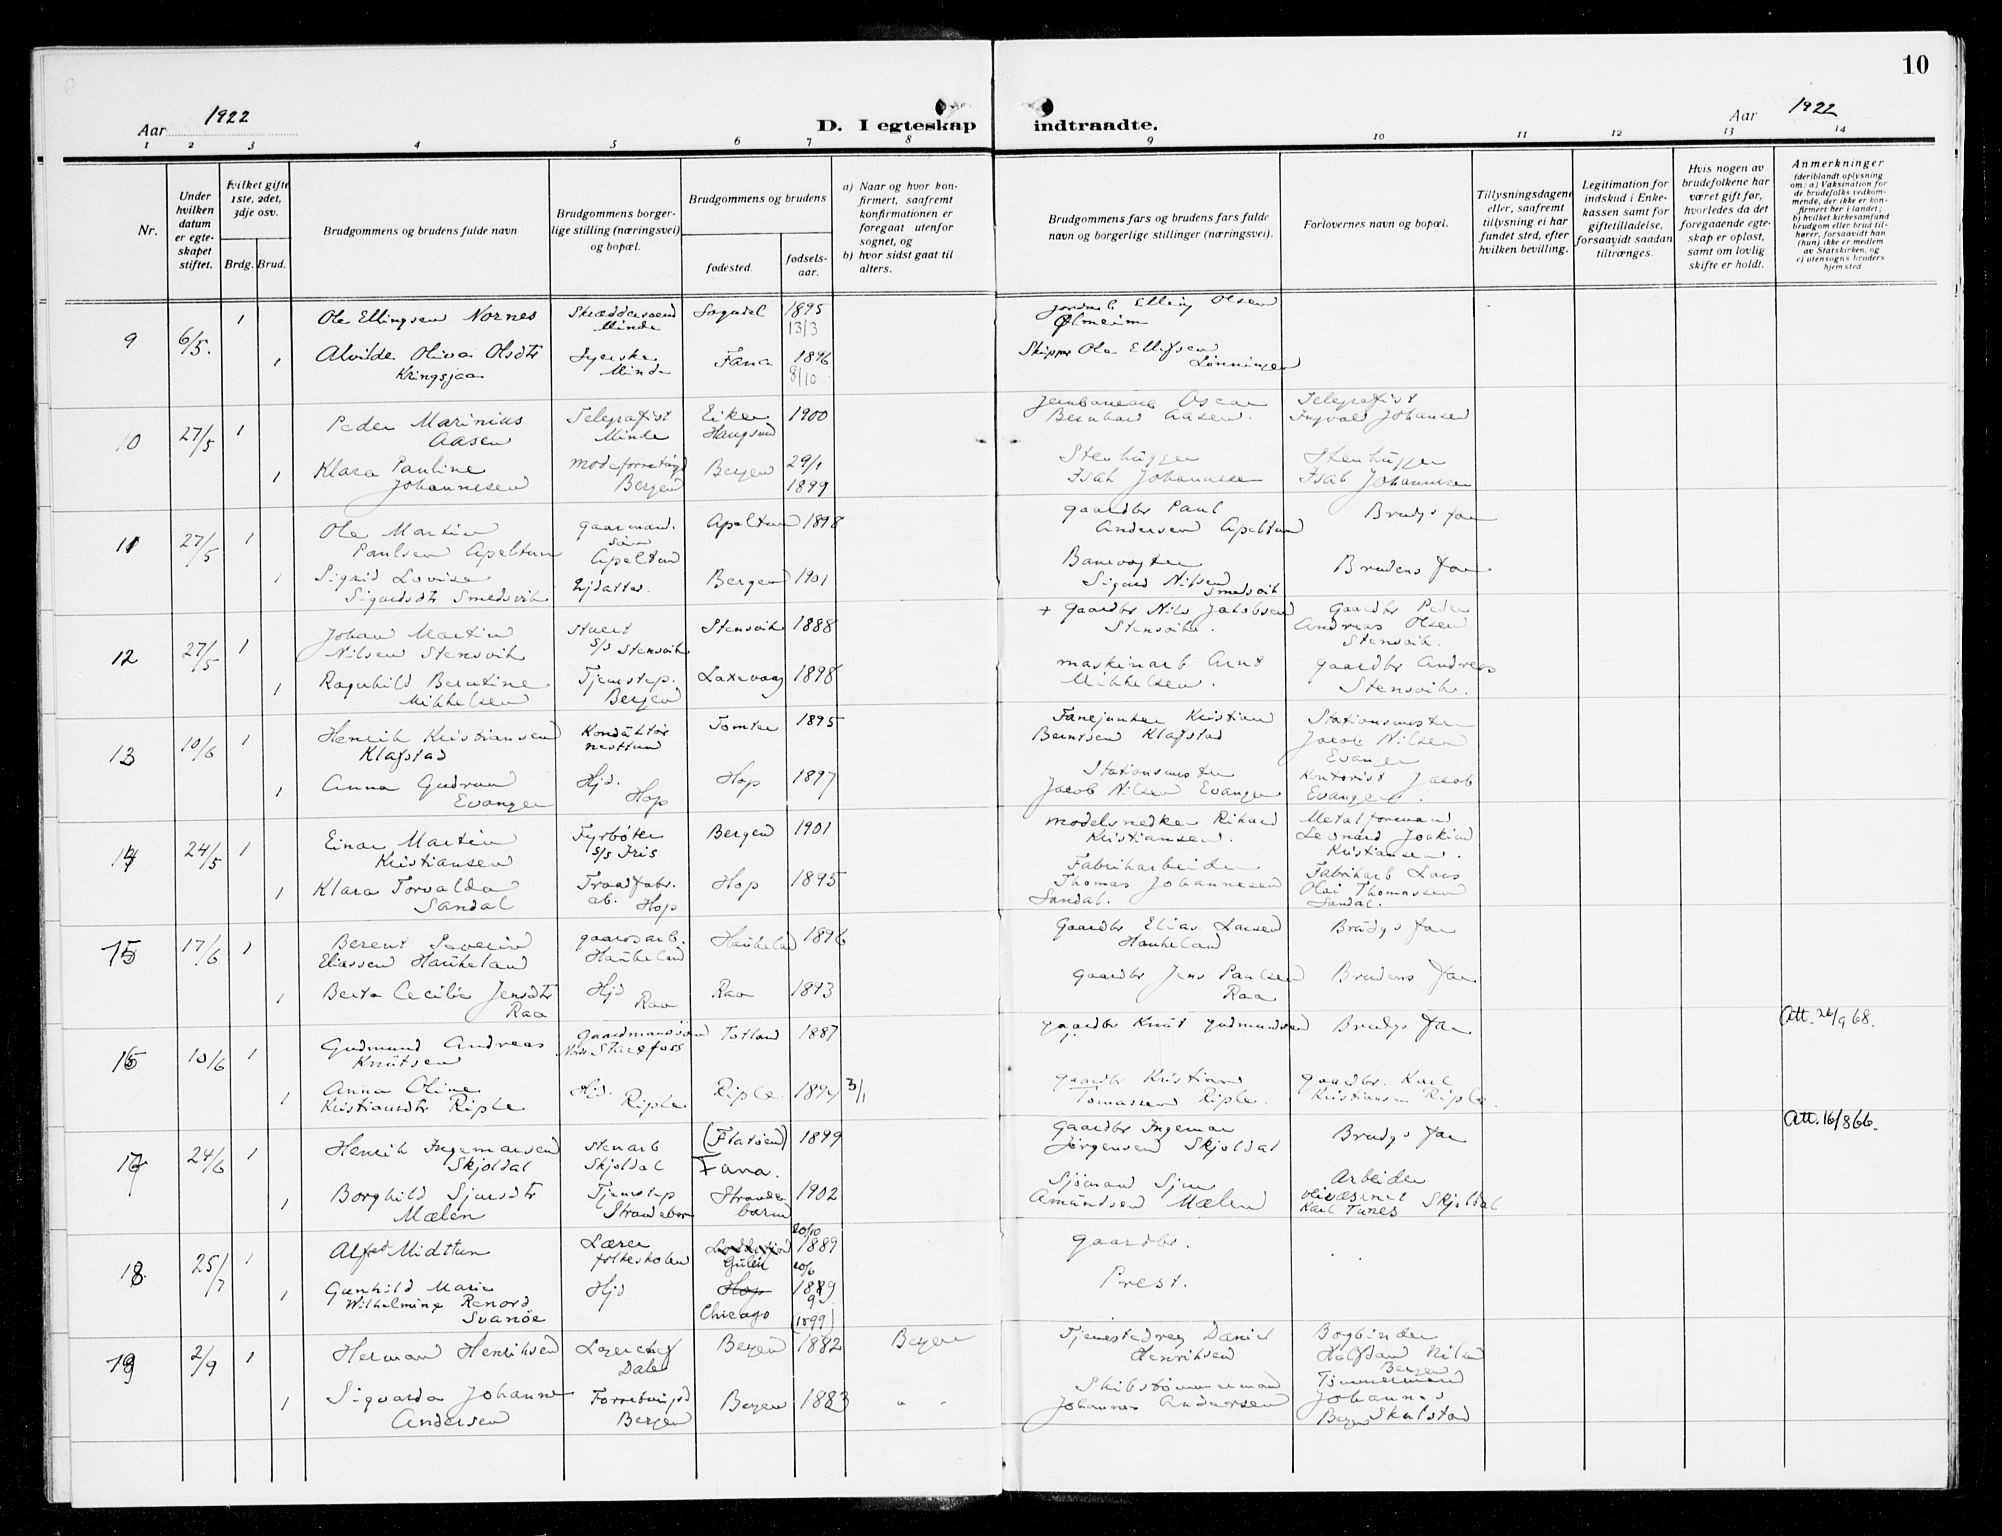 10
Aar 1922
D. I egteskap indtraadte.
Aar 1922
1 2 3 4 5 6 7 8 9 10 11 12 13 14
Nr.
Under hvilken datum er egteskapet stiftet.
Hvilket gifte 1ste, 2det, 3dje osv.
Brdg. Brud.
Brudgommens og brudens fulde navn
Brudgommens borgerlige stilling (næringsvei) og bopæl.
Brudgommens og brudens
fødested.
fødselsaar.
a) Naar og hvor konfirmert, saafremt konfirmationen er foregaat utenfor sognet, og
b) hvor sidst gaat til alters.
Brudgommens fars og brudens fars fulde navn og borgerlige stillinger (næringsvei).
Forlovernes navn og bopæl.
Tillysningsdagene eller, saafremt tillysning ei har fundet sted, efter hvilken bevilling.
Legitimation for indskud i Enkekassen samt for giftetilladelse, forsaavidt saadan tiltrænges.
Hvis nogen av brudefolkene har været gift før, hvorledes da det foregaaende egteskap er opløst, samt om lovlig skifte er holdt.
Anmerkninger
(deriblandt oplysning om: a) Vaksination for de brudefolks vedkommende, der ikke er konfirmert her i landet; b) hvilket kirkesamfund brudgom eller brud tilhører, forsaavidt han (hun) ikke er medlem av Statskirken, og c) utensogns bruders hjemsted
9 6/5. 1 Ole Ellingsen Nornes Skræddersvend Minde Sogndal 1895 13/3 Elling Olsen Ølmheim
1 Alvilde Oliva Olsdtr Kringsjaa Syerske Minde Fana 1896 8/10 Skipper Ole Ellefsen Lønningen
10 27/5 1 Peder Marinius Aasen Telegrafist Minde Eiker Haugsund 1900 Jernbanearb Oscar Bernhard Aasen. Telegrafist Ingvald Johansen
1 Klara Pauline Johannesen Modeforretngd Bergen Bergen 29/1 1899 Stenhugger Isak Johannesen Stenhugger Isak Johannesen
11 27/5 1 Ole Martin Paulsen Apeltun gaardmand. søn Apeltun Apeltun 1898 gaardbr Paul Andersen Apeltun Brudgs far
1 Sigrid Lovise Sigurdsdtr Smedsvik Hjdatter. Bergen 1901 Banevogter Sigurd Nilsen Smedsvik Brudens far
12 27/5 1 Johan Martin Nilsen Stensvik Stuert S/S Stensvik Stensvik 1888 + gaardbr Nils Jakobsen Stensvik. Gaardbr Peder Andreas Olsen Stensvik
1 Ragnhild Berntine Mikkelsen Tjenstep. Bergen Laxevaag 1898 maskinarb Arnt Mikkelsen. gaardbr Andreas Stensvik.
13 10/6 1 Henrik Kristiansen Klafstad Konduktør nesttun Tomter 1895 Fanejunker Kristian Berntsen Klafstad Stationsmester Jacob Nilsen Evanger
1 Anna Gudrun Evanger Hjd. Hop Hop 1897 Stationsmester Jacob Nilsen Evanger Kontorist Jacob Evanger.
14 24/5 1 Einar Martin Kristiansen Fyrbøter S/S Iris Bergen 1901 modelsnedker Rikard Kristiansen. Metalformand Leonard Joakim Kristiansen.
1 Klara Torvalda Sandal Traadfabr. arb. Hop Hop 1895 Fabrikarbeider Thomas Johannesen Sandal. Fabrikarb Lars Olai Thomassen Sandal.
15 17/6 1 Berent Severin Eliassen Haukeland gaardsarb. Haukeland Haukeland 1896 Gaardbr Elias Larsen Haukeland Brudgs far
1 Berta Cecilie Jensdtr Raa Hjd Raa Raa 1893 gaardbr Jens Paulsen Raa Brudens far
16 10/6 1 Gudmund Andreas Knutsen gaardmandssøn Nordr Starefoss Totland 1887 gaardbr Knut Gudmundsen Brudgs far Att. 24/9 68.
1 Anna Oline Kristiansdtr Riple Hjd. Riple. Riple. 1894 3/1 gaardbr Kristian Tomassen Riple. gaardbr. Karl Kristiansen Riple.
17 24/6 1 Henrik Ingemarsen Skjoldal stenarb Skjoldal (Flatøen) Fana. 1899 Gaardbr Ingemar Jørgensen Skjoldal Brudgs far Att. 16/8 66.
1 Borghild Sjursdtr Mælen Tjenstep Strandebarm Strandebarm 1902 Sjömand Sjur Amundsen Mælen Arbeider veivæsenet Karl Tunes Skjoldal
18 25/7 1 Alfred Midttun Lærer folkeskolen Gulen 20/10 1889 gaardbr.
1 Gunhild Marie Wilhelmine Renord Svanöe Hjd Hop Chicago 20/6 1889 9 (1899) Prest.
19 2/9 1 Herman Henriksen Lagerchef Dale Bergen 1882 Bergen Daniel Henriksen Bogbinder Halfdan Bergen
1 Sigvarda Johanne Andersen Forretningsd Bergen Bergen 1883 " " Skibstømmermand Johannes Andersen Tømmermand Johannes Skulstad Bergen